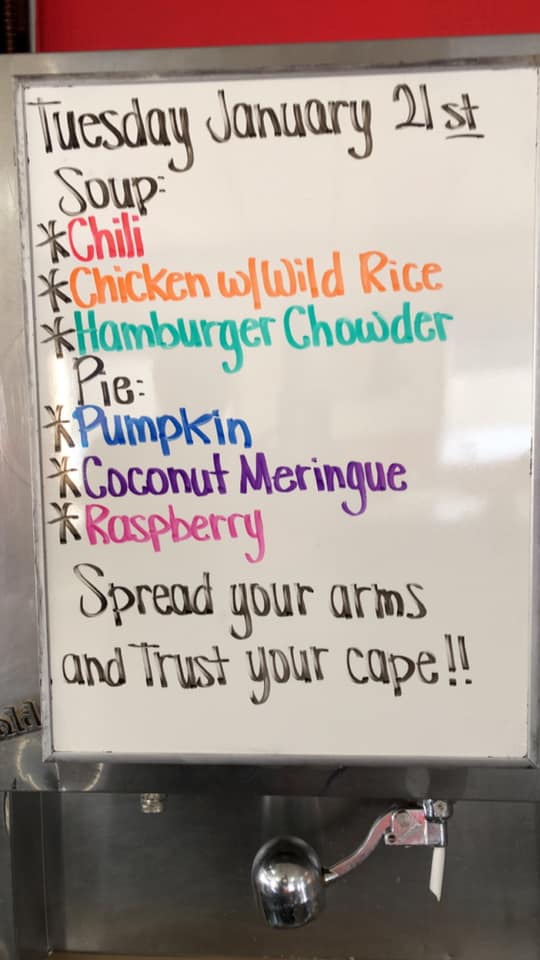 Tuesday January 21st
Soup:
*Chili
*Chicken w/Wild Rice
*Hamburger Chowder
Pie:
*Pumpkin
*Coconut Meringue
*Raspberry
Spread your arms
and Trust your cape!!